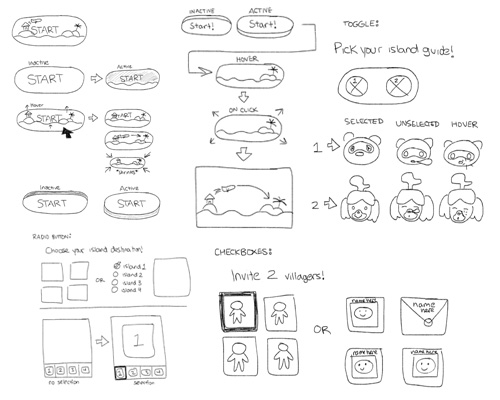 START
Inactive
Active
START
START
Hover
START
START
START
*shrinks*
Inactive
Active
START
START
INACTIVE
ACTIVE
Start!
Start!
HOVER
START
ON CLICK
TOGGLE:
Pick your island guide!
1
2
SELECTED
UNSELECTED
HOVER
1
2
RADIO BUTTON:
Choose your island destination!
OR
island 1
island 2
island 3
island 4
1
1 2 3 4
1 2 3 4
no selection
selection
CHECKBOXES:
Invite 2 villagers!
OR
name here
name here
name here
name here